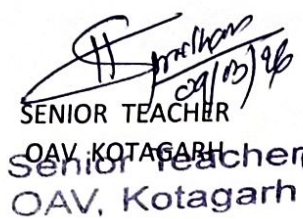 09/03/26
SENIOR TEACHER
OAV KOTAGARH
Senior Teacher
OAV, Kotagarh